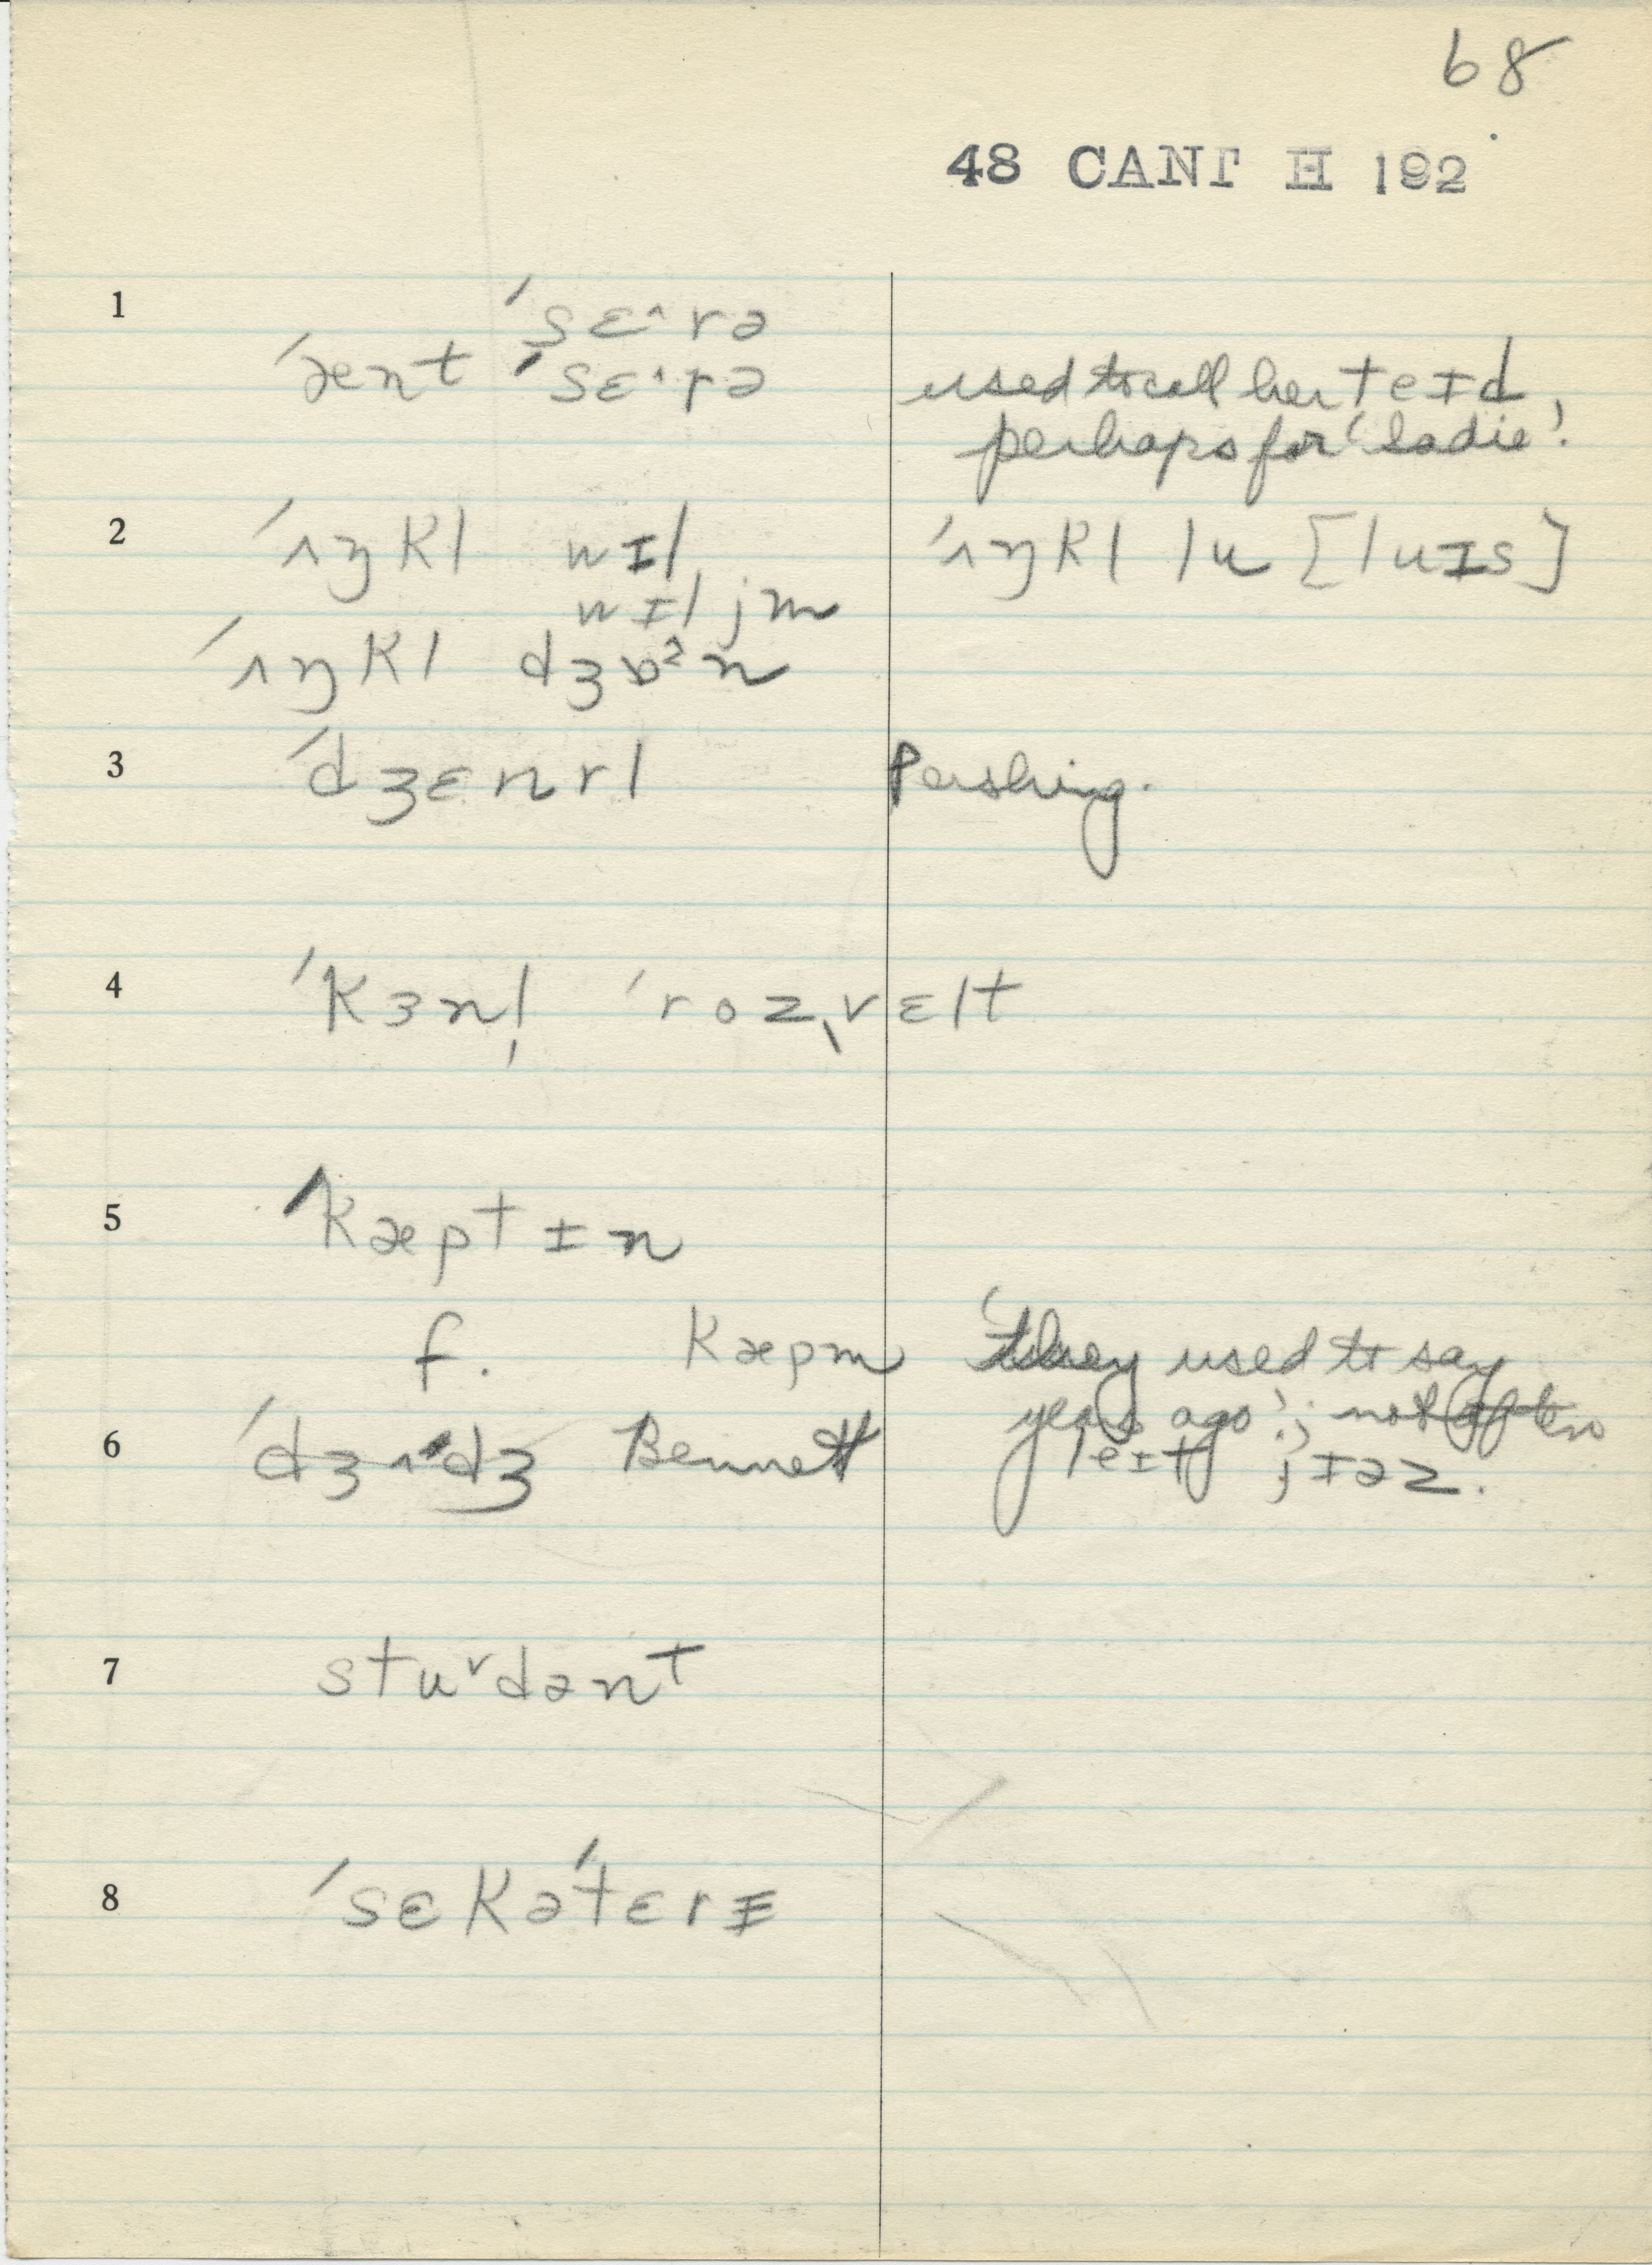 68
48 CANT H 192
1
ˈsɛ˄rə
ˈænt ˈsɛ˄rə used to call her teɪd,
perhaps for 'Sadie'.
2 ˈʌŋkl wɪl ˈʌŋkl lu [luɪs]
wɪljm
ˈʌŋkl dʒɒˀn
3 ˈdʒɛnrl Pershing.
4 ˈkɜnl̩ ˈrozˌvɛlt
5 ˈkæptɪn
f. kæpm 'they used to say
years ago'; not often
6 ˈdʒʌdʒ Bennett jɪəz.
7 stu˅dənt
8 ˈsɛkəˈtɛrɪ